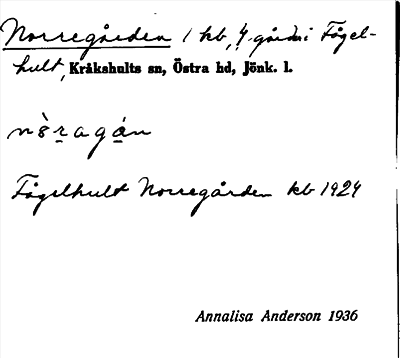 Norregården 1 kb, 4. gård i Fågel-
hult, Kråkshults sn, Östra hd, Jönk. l.
nòragán
Fågelhult Norregården kb 1924
Annalisa Anderson 1936